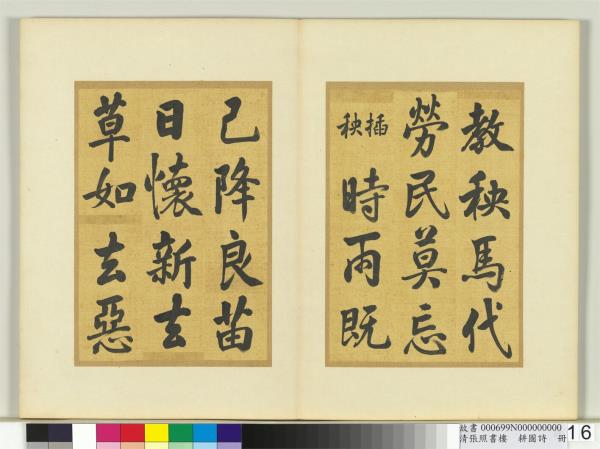 教秧馬代
勞民莫忘
插秧 時雨既
已降良苗
日懷新去
草如去惡
故書 000699N000000000
清張照書樓 耕圖詩 冊
16